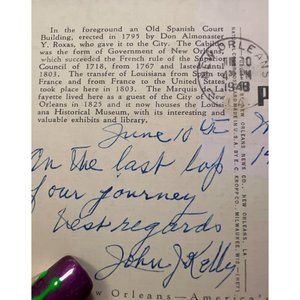 In the foreground an Old Spanish Court
Building, erected in 1795 by Don Almonaster
Y. Roxas, who gave it to the City. The Cabildo
was the form of Government of New Orleans,
which succeeded the French rule of the Superior
Council of 1718, from 1767 and lasted until
1803. The transfer of Louisiana from Spain to
France and from France to the United States
took place here in 1803. The Marquis de La
fayette lived here as a guest of the City of
New Orleans in 1825 and it now houses the Louis-
iana Historical Museum, with its interesting and
valuable exhibits and library.
ORLEANS
1948
June 10th
On the last lap
of our journey
best regards
John J Kelly
w Orleans—America's
NEW ORLEANS NEWS CO., NEW ORLEANS, LA.
E. C. KROPP CO., MILWAUKEE, WIS.